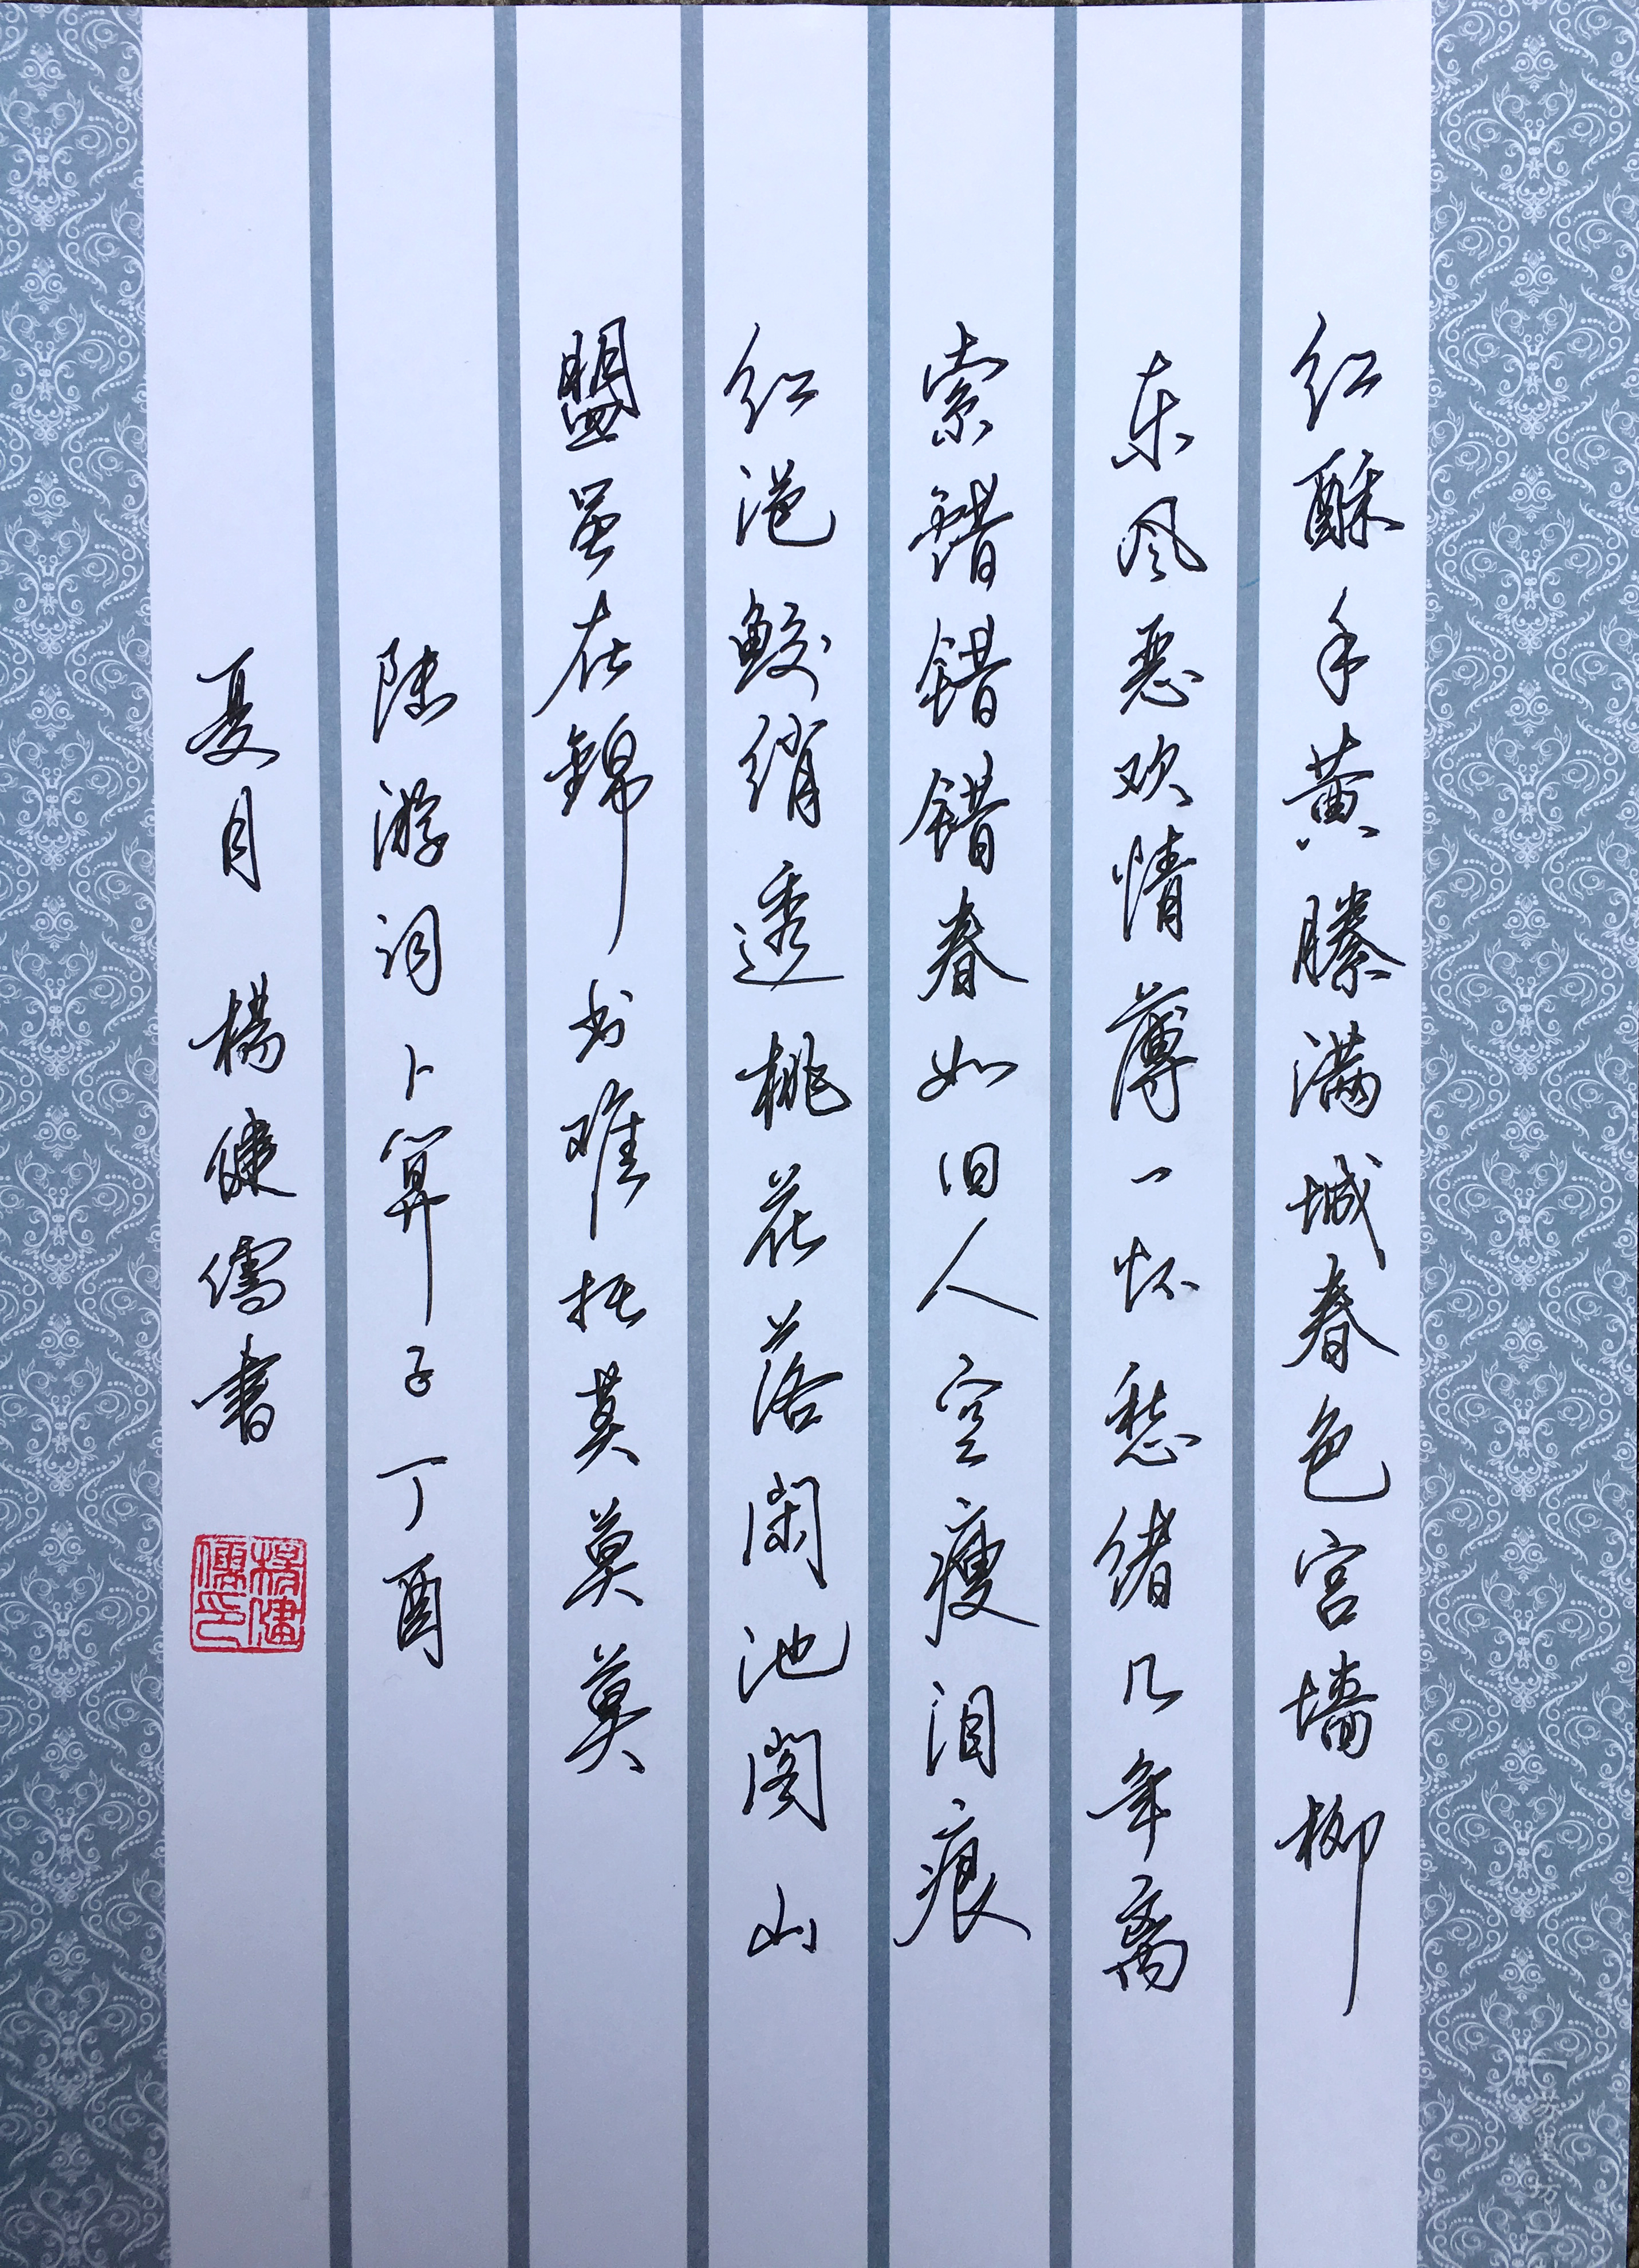 红酥手黄縢满城春色宫墙柳
东风恶欢情薄一怀愁绪几年离
索错错错春如旧人空瘦泪痕
红浥鲛绡透桃花落闲池阁山
盟虽在锦书难托莫莫莫
陆游词卜算子丁酉
夏月楊健儒書
楊健儒印